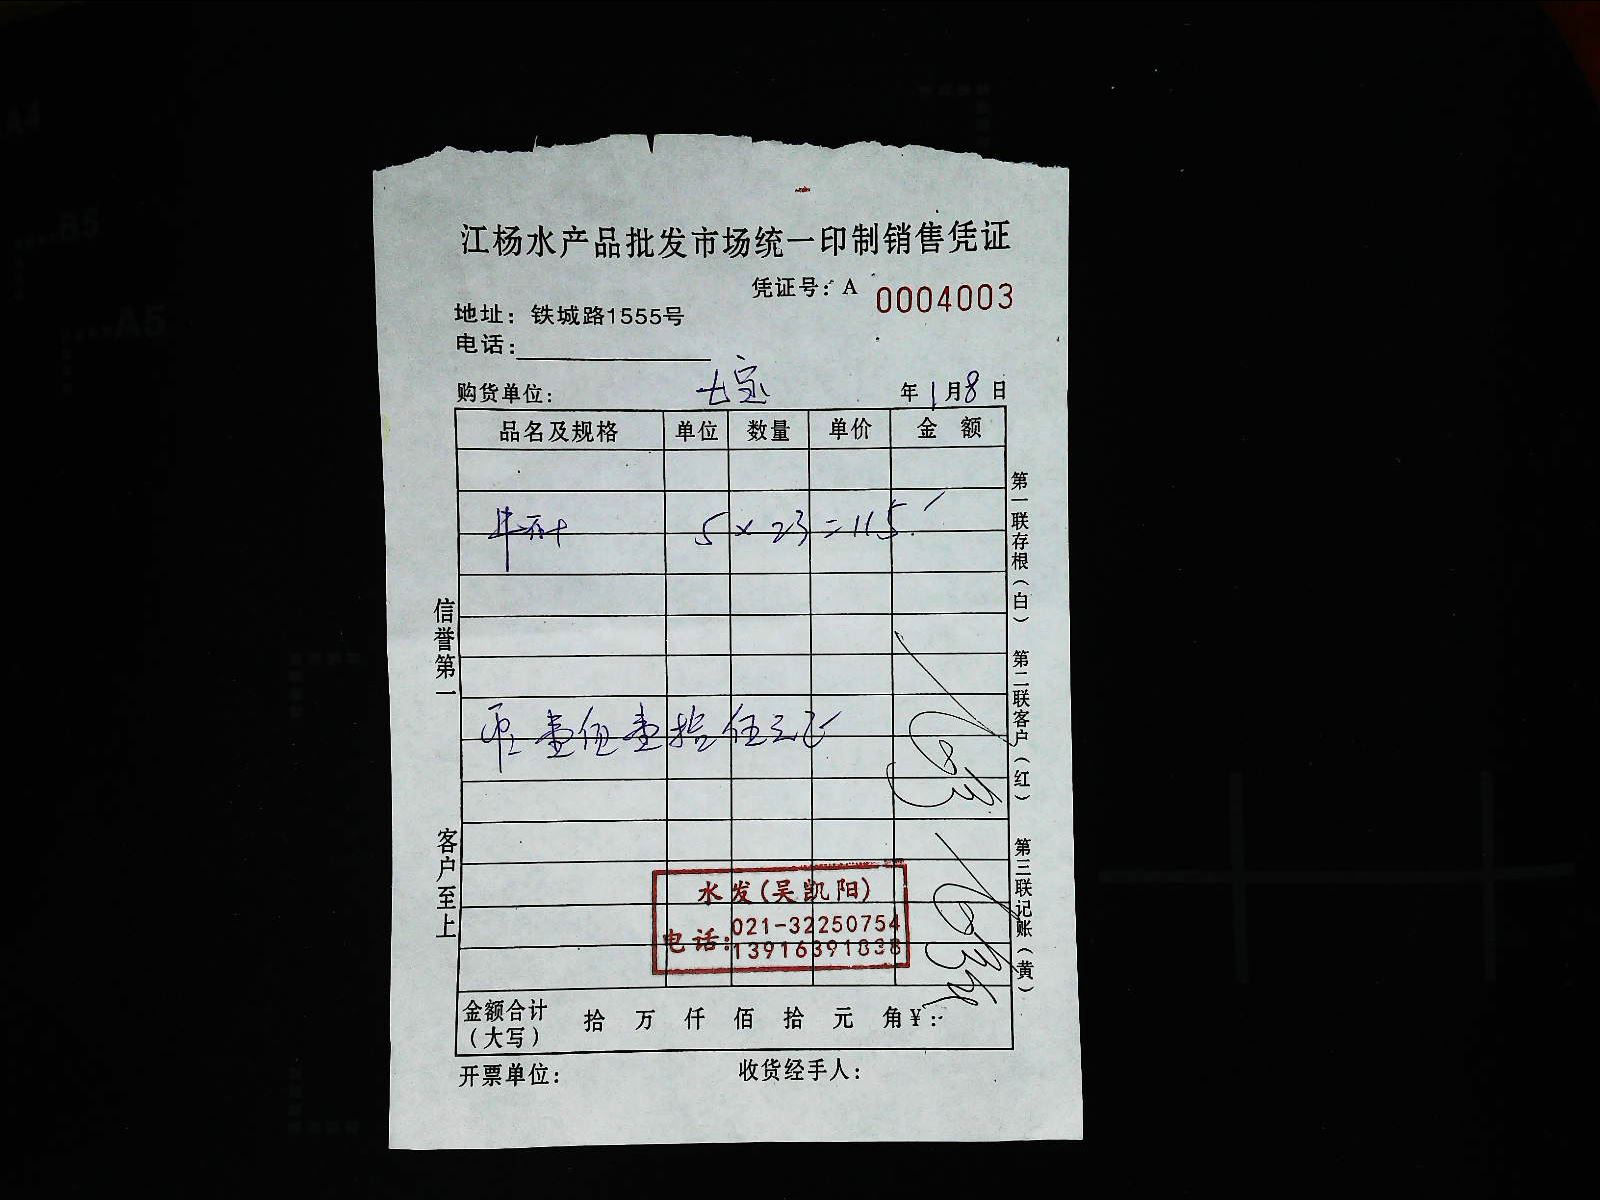 江杨水产品批发市场统一印制销售凭证
凭证号：A 0004003
地址：铁城路1555号
电话：
购货单位： 七宝 年 1 月 8 日
品名及规格 单位 数量 单价 金 额
5 × 23 = 115.
壹佰壹拾伍元正
水发(吴凯阳)
电话：021-32250754
13916391838
金额合计（大写） 拾 万 仟 佰 拾 元 角 ¥：
开票单位： 收货经手人：
信誉第一
客户至上
第一联存根（白）
第二联客户（红）
第三联记账（黄）
A4
B5
A5